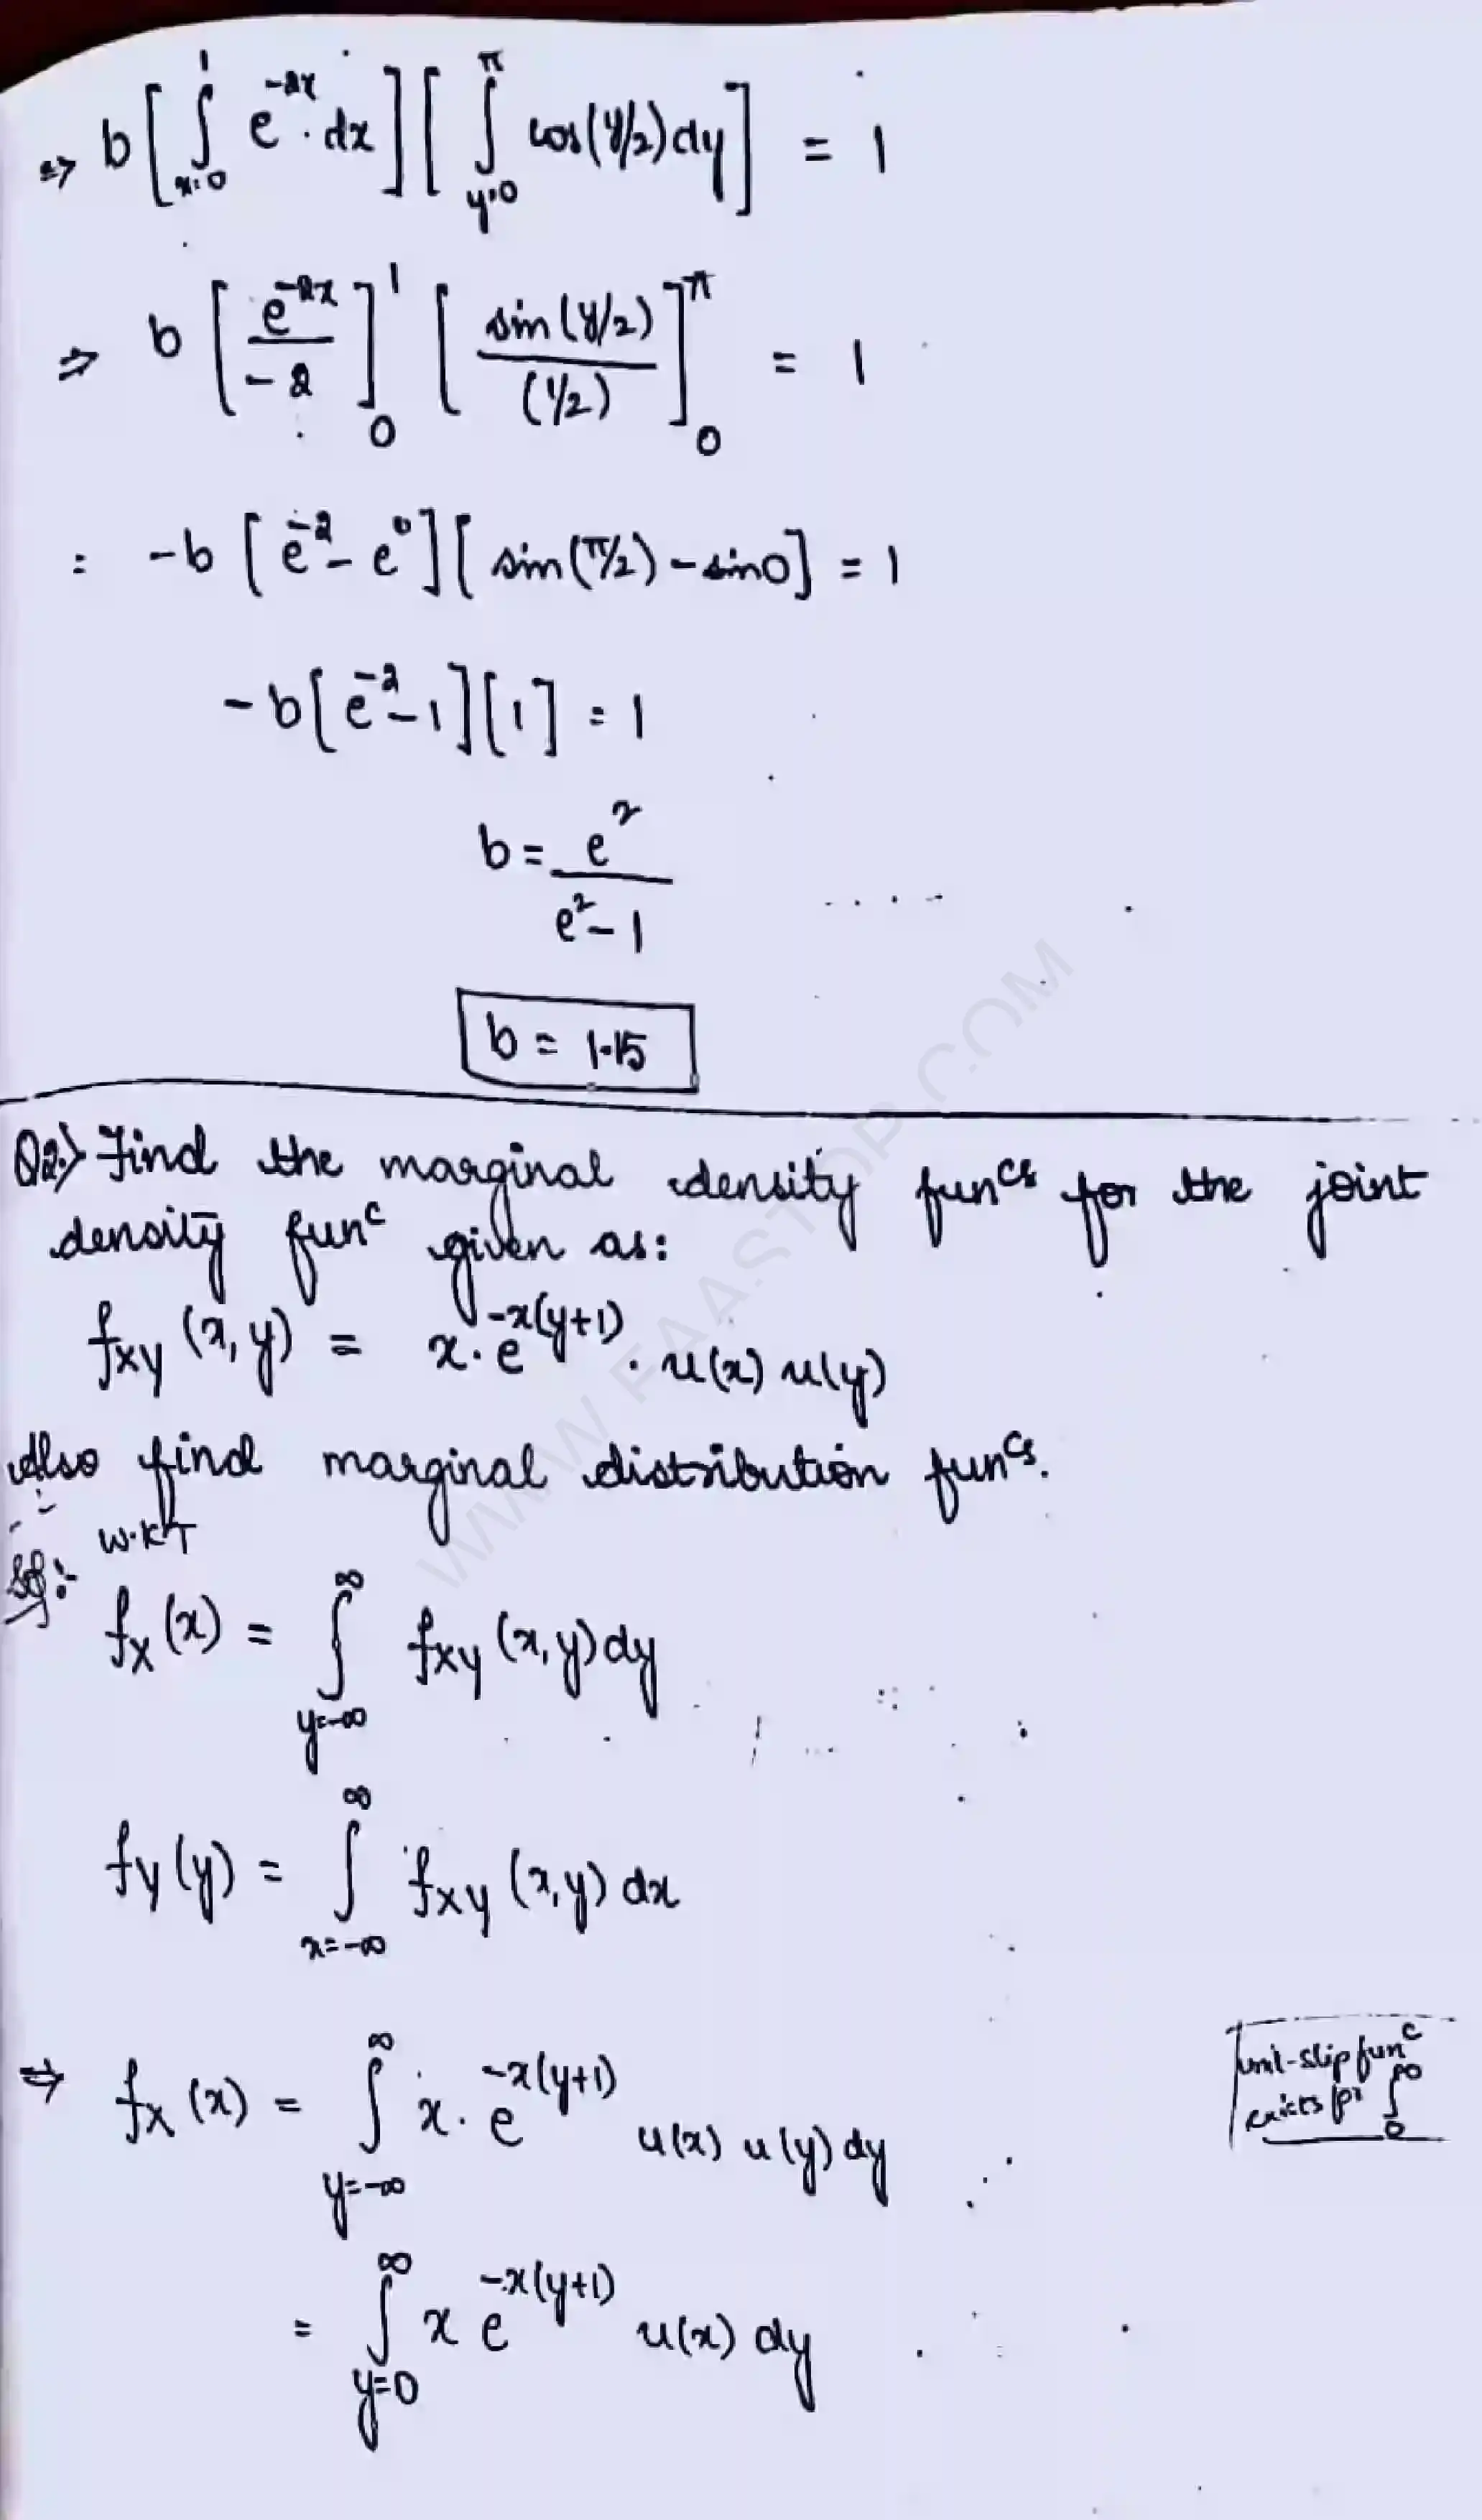 ⇒ b[∫_{x=0}^{1} e^{-2x}·dx][∫_{y=0}^{π} cos(y/2)dy] = 1
⇒ b[e^{-2x}/-2]_0^1 [sin(y/2)/(1/2)]_0^π = 1
= -b[e^{-2} - e^0][sin(π/2) - sin0] = 1
-b[e^{-2} - 1][1] = 1
b = e^2/(e^2 - 1)
b = 1.15
Q2.) Find the marginal density func^s for the joint
density func given as:
f_{XY}(x,y) = x·e^{-x(y+1)}·u(x) u(y)
Also find marginal distribution func^s.
Sol:- W.K.T
f_X(x) = ∫_{y=-∞}^{∞} f_{XY}(x,y)dy
f_Y(y) = ∫_{x=-∞}^{∞} f_{XY}(x,y)dx
⇒ f_X(x) = ∫_{y=-∞}^{∞} x·e^{-x(y+1)} u(x) u(y)dy
unit-step func
exists for ∫_0^∞
= ∫_{y=0}^{∞} x e^{-x(y+1)} u(x) dy
WWW.FAASTOP.COM